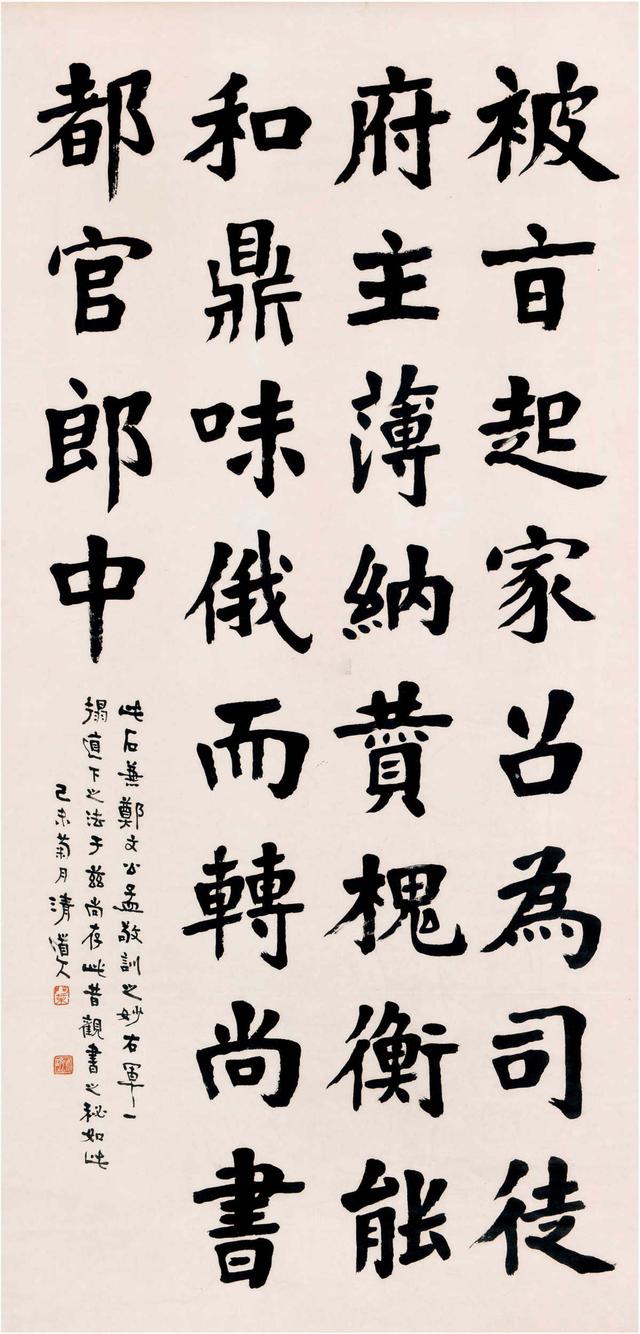 被旨起家召為司徒
府主薄納贊槐衡能
和鼎味俄而轉尚書
都官郎中
此石兼鄭文公孟敬訓之妙右軍一
搨直下之法于茲尚存此昔觀書之秘如此
己未菊月清道人